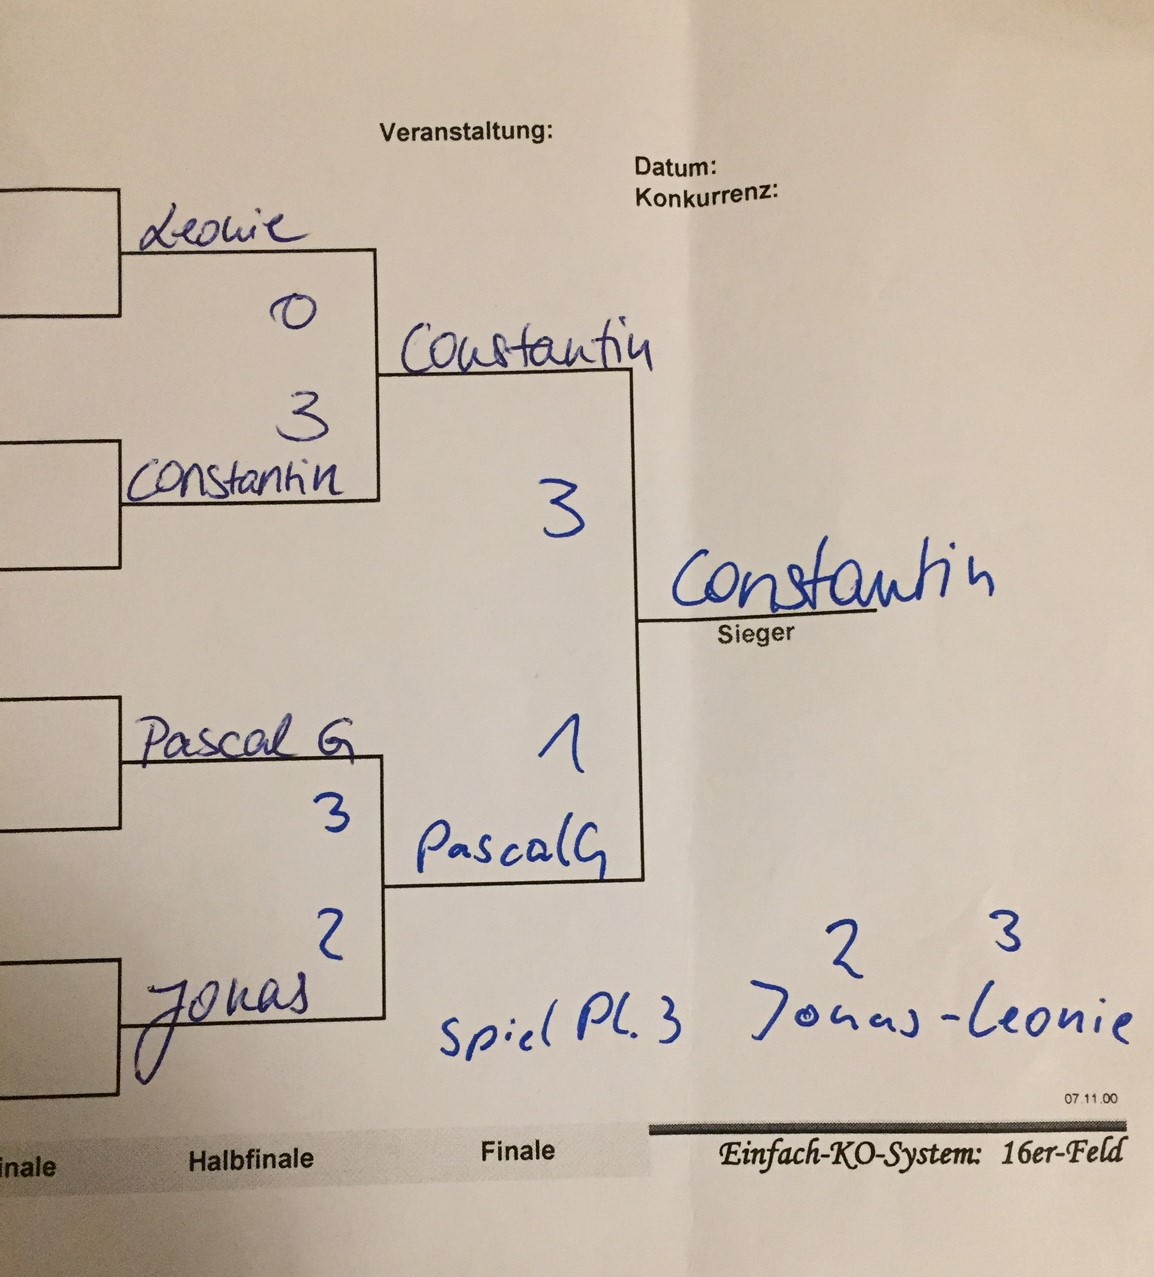 Veranstaltung:
Datum:
Konkurrenz:
Leonie
0
3
Constantin
Constantin
3
Constantin
Sieger
1
Pascal G
3
2
Jonas
Pascal G
Spiel Pl. 3
2 3
Jonas - Leonie
07.11.00
inale Halbfinale Finale
Einfach-KO-System: 16er-Feld